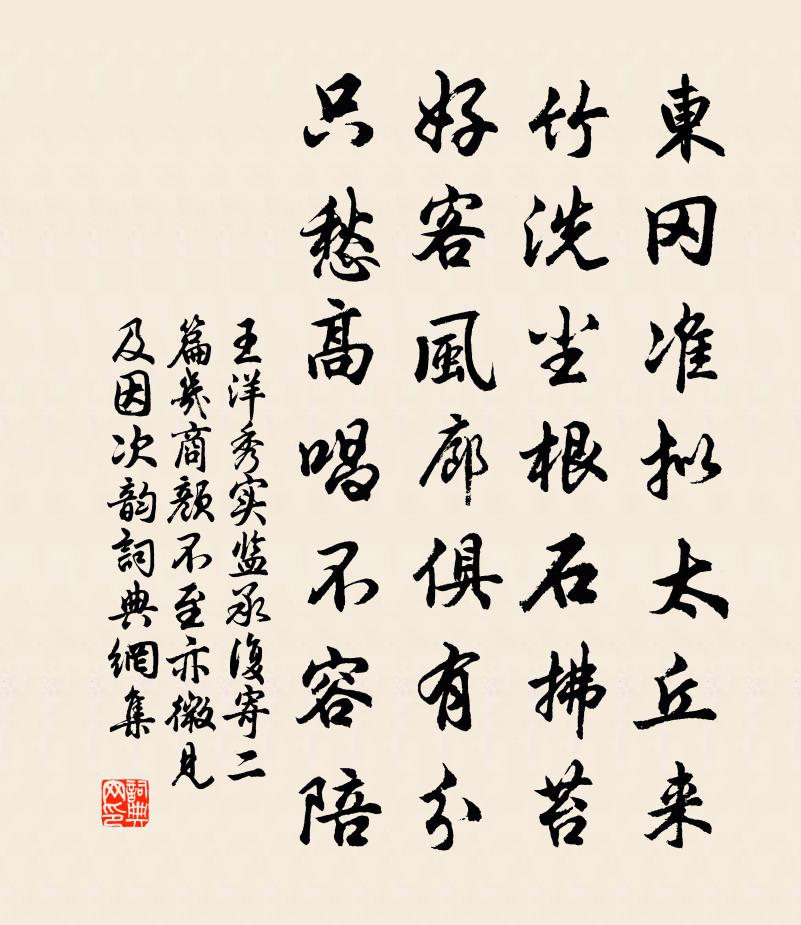 東冈准拟太丘来
竹洗尘根石拂苔
好客風廊俱有分
只愁高唱不容陪
王洋秀实监丞復寄二
篇幾商顏不至亦微見
及因次韵詞典網集
詞典网印